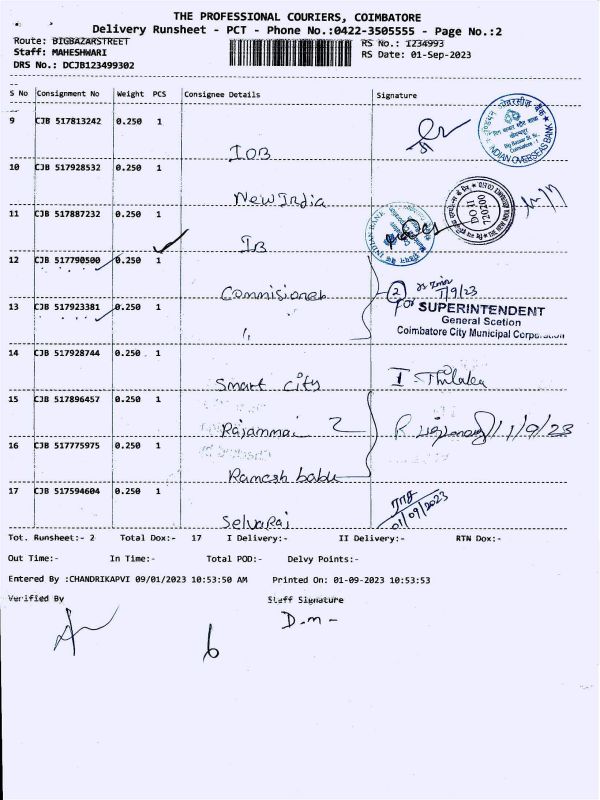 THE PROFESSIONAL COURIERS, COIMBATORE
Delivery Runsheet - PCT - Phone No.:0422-3505555 - Page No.:2
Route: BIGBAZARSTREET
RS No.: 1234993
Staff: MAHESHWARI
RS Date: 01-Sep-2023
DRS No.: DCJB123499302
S No Consignment No Weight PCS Consignee Details Signature
9 CJB 517813242 0.250 1
IOB
INDIAN OVERSEAS BANK
10 CJB 517928532 0.250 1
New India
11 CJB 517887232 0.250 1
IB
INDIAN BANK
DO II
720200
12 CJB 517790500 0.250 1
Commisioner
2
/9/23
13 CJB 517923381 0.250 1
for SUPERINTENDENT
General Scetion
Coimbatore City Municipal Corporation
14 CJB 517928744 0.250 1
Smart city
I. Thilaka
15 CJB 517896457 0.250 1
Rajammai 2
1/9/23
16 CJB 517775975 0.250 1
Ramesh babu
17 CJB 517594604 0.250 1
Selvaraj
01/09/2023
Tot. Runsheet:- 2 Total Dox:- 17 I Delivery:- II Delivery:- RTN Dox:-
Out Time:- In Time:- Total POD:- Delvy Points:-
Entered By :CHANDRIKAPVI 09/01/2023 10:53:50 AM Printed On: 01-09-2023 10:53:53
Verified By Staff Signature
D.m-
6